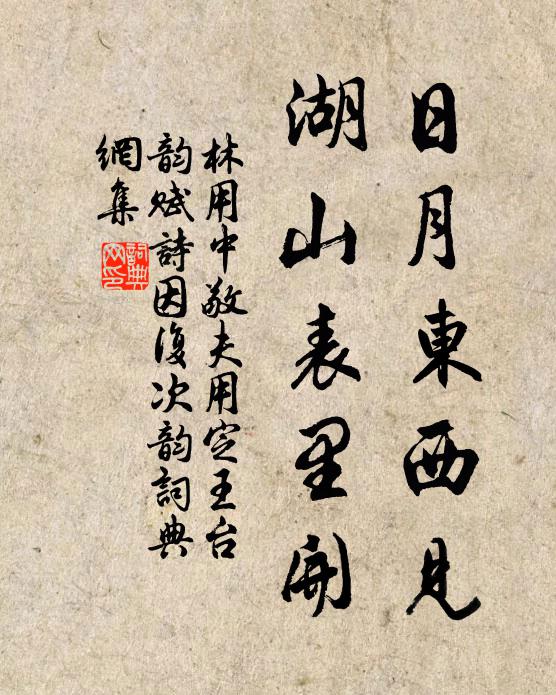 日月東西見
湖山表里開
林用中敬夫用定王台
韵賦詩因復次韵詞典
網集
詞典
网印